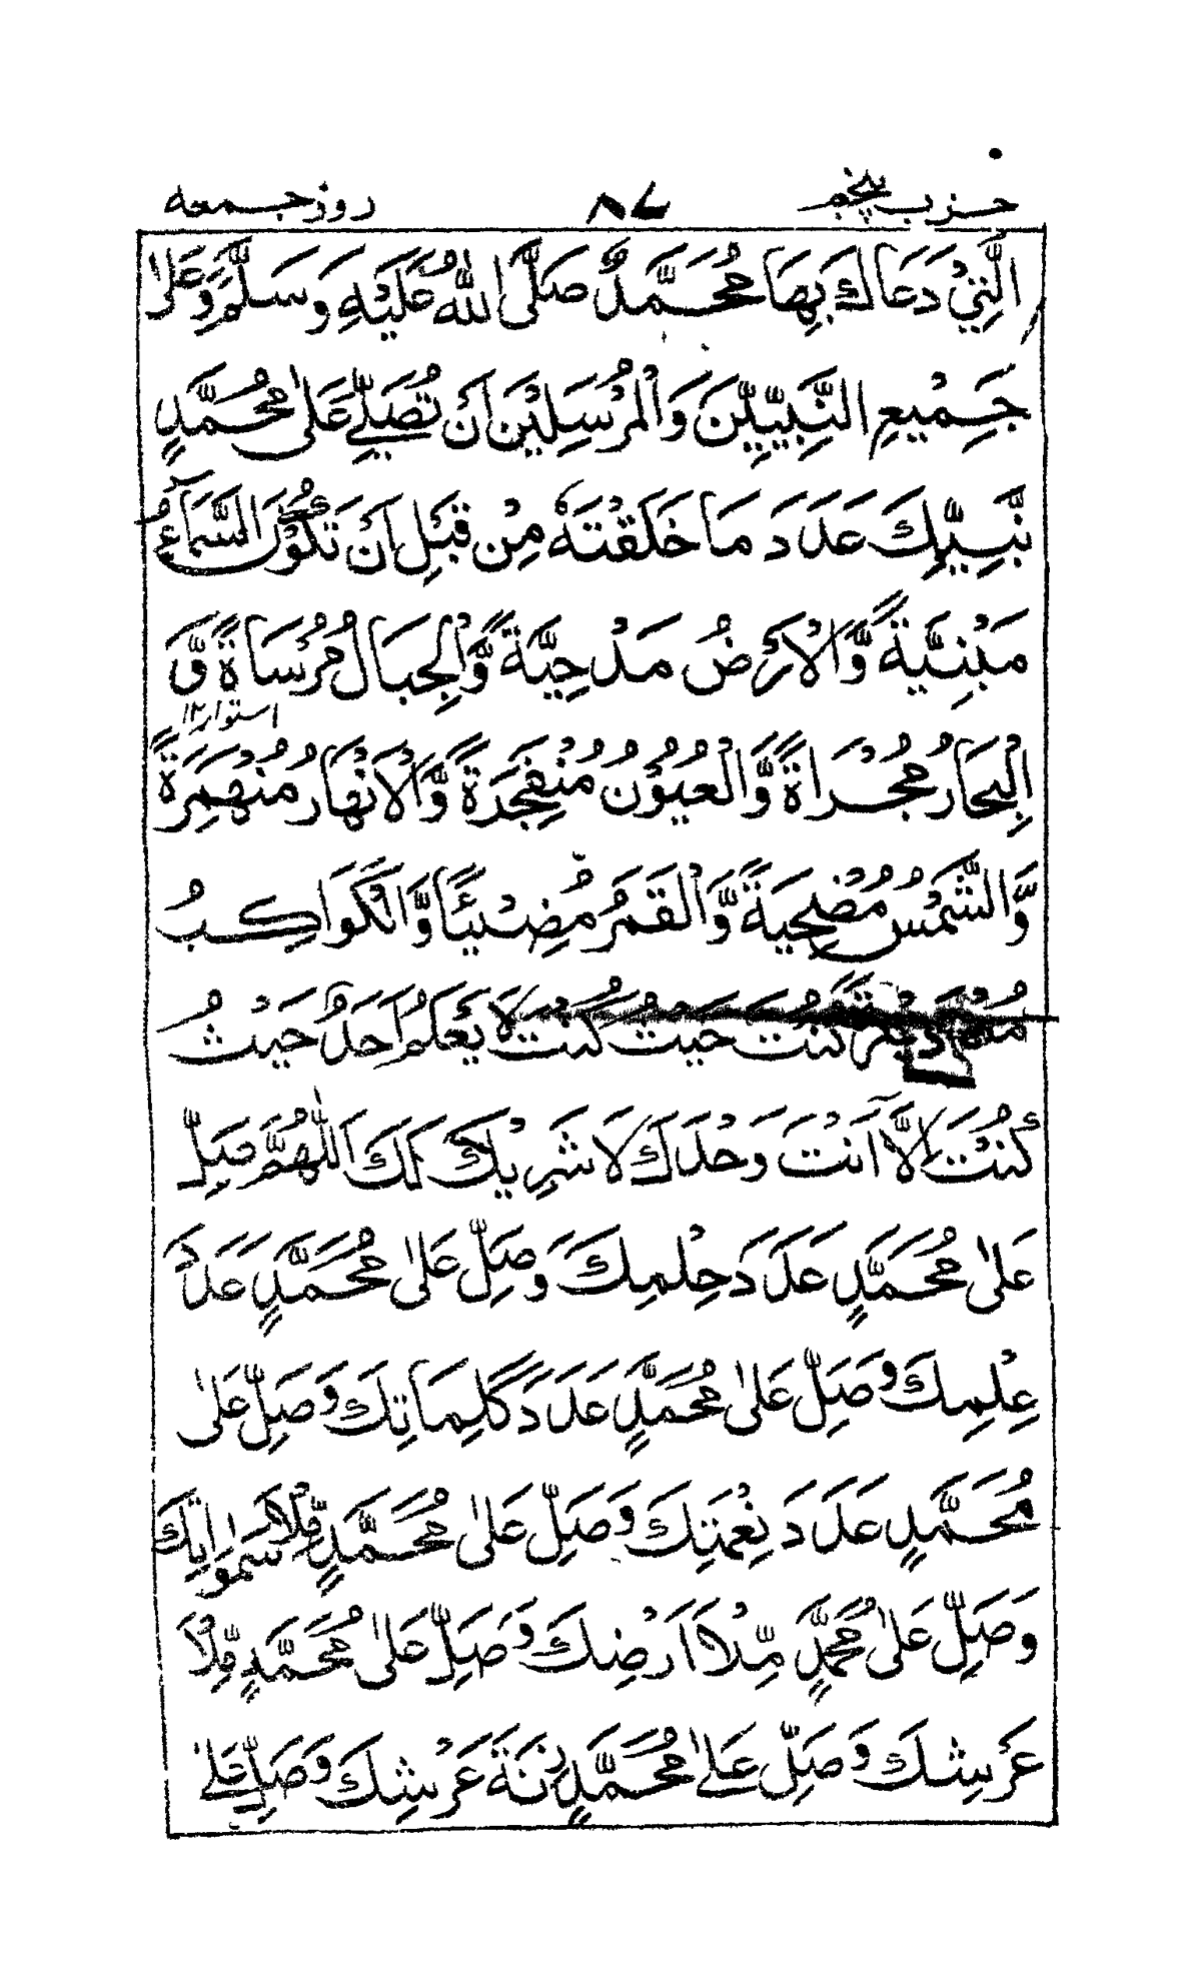 حزب پنجم ٨٧ روز جمعه
الَّتِيْ دَعَاكَ بِهَا مُحَمَّدٌ صَلَّى اللّٰهُ عَلَيْهِ وَسَلَّمَ وَعَلٰى
جَمِيْعِ النَّبِيّٖنَ وَالْمُرْسَلِيْنَ اَنْ تُصَلِّيَ عَلٰى مُحَمَّدٍ
نَّبِيِّكَ عَدَدَ مَا خَلَقْتَهٗ مِنْ قَبْلِ اَنْ تَكُوْنَ السَّمَآءُ
مَبْنِيَّةً وَّالْاَرْضُ مَدْحِيَّةً وَّالْجِبَالُ مُرْسَاةً وَّ
استوار١٢
الْبِحَارُ مُجْرَاةً وَّالْعُيُوْنُ مُنْفَجِرَةً وَّالْاَنْهَارُ مُنْهَمِرَةً
وَّالشَّمْسُ مُضْحِيَةً وَّالْقَمَرُ مُضِيْئًا وَّالْكَوَاكِبُ
كُنْتَ حَيْثُ كُنْتَ لَا يَعْلَمُ اَحَدٌ حَيْثُ
كُنْتَ اِلَّا اَنْتَ وَحْدَكَ لَا شَرِيْكَ لَكَ اَللّٰهُمَّ صَلِّ
عَلٰى مُحَمَّدٍ عَدَدَ حِلْمِكَ وَصَلِّ عَلٰى مُحَمَّدٍ عَدَدَ
عِلْمِكَ وَصَلِّ عَلٰى مُحَمَّدٍ عَدَدَ كَلِمَاتِكَ وَصَلِّ عَلٰى
مُحَمَّدٍ عَدَدَ نِعْمَتِكَ وَصَلِّ عَلٰى مُحَمَّدٍ مِّلْاَ سَمٰوَاتِكَ
وَصَلِّ عَلٰى مُحَمَّدٍ مِّلْاَ اَرْضِكَ وَصَلِّ عَلٰى مُحَمَّدٍ مِّلْاَ
عَرْشِكَ وَصَلِّ عَلٰى مُحَمَّدٍ زِنَةَ عَرْشِكَ وَصَلِّ عَلٰى